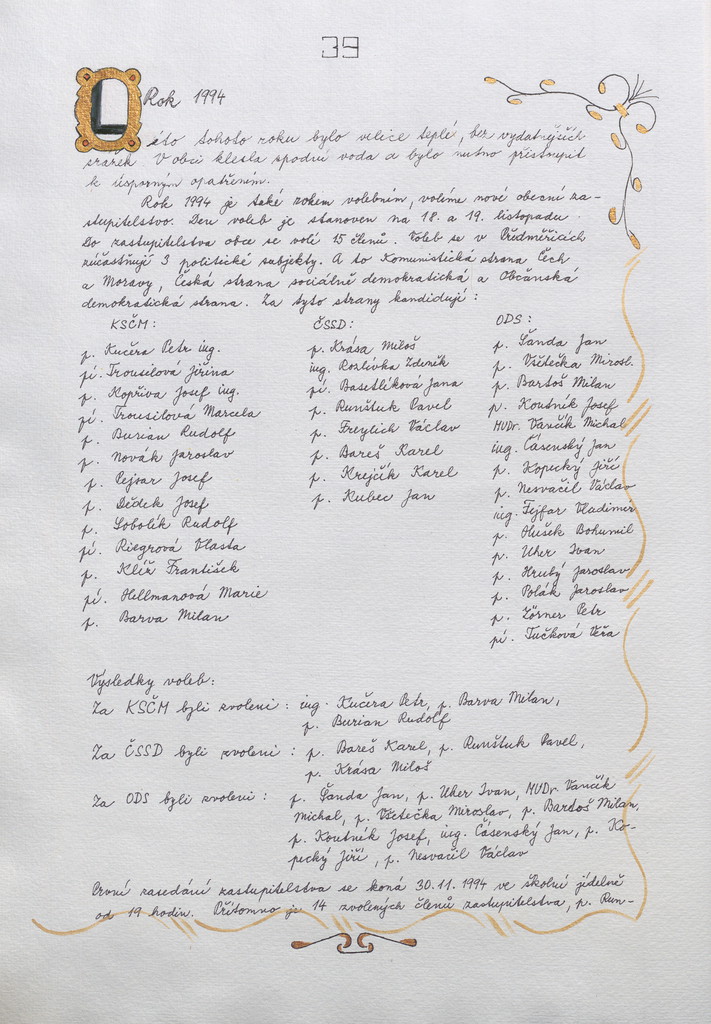 39
Rok 1994
Léto tohoto roku bylo velice teplé, bez vydatnějších
srážek. V obci klesla spodní voda a bylo nutno přistoupit
k úsporným opatřením.
Rok 1994 je také rokem volebním, volíme nové obecní za-
stupitelstvo. Den voleb je stanoven na 18. a 19. listopadu.
Do zastupitelstva obce se volí 15 členů. Voleb se v Předměřicích
zúčastňují 3 politické subjekty. A to Komunistická strana Čech
a Moravy, Česká strana sociálně demokratická a Občanská
demokratická strana. Za tyto strany kandidují:
KSČM:
p. Kučera Petr ing.
pí. Trousilová Jiřina
p. Kopřiva Josef ing.
pí. Trousilová Marcela
p. Burian Rudolf
p. Novák Jaroslav
p. Pejsar Josef
p. Dědek Josef
p. Sobolík Rudolf
pí. Riegrová Vlasta
p. Klíž František
pí. Hellmanová Marie
p. Barva Milan
ČSSD:
p. Krása Miloš
ing. Rozlívka Zdeněk
pí. Basetlíková Jana
p. Runštuk Pavel
p. Freylich Václav
p. Bareš Karel
p. Krejčík Karel
p. Kubec Jan
ODS:
p. Šanda Jan
p. Všetečka Mirosl.
p. Bartoš Milan
p. Koutník Josef
MUDr. Vančík Michal
ing. Čásenský Jan
p. Kopecký Jiří
p. Nesvačil Václav
ing. Fejfar Vladimír
p. Hušek Bohumil
p. Uher Ivan
p. Hrubý Jaroslav
p. Polák Jaroslav
p. Zörner Petr
pí. Tučková Věra
Výsledky voleb:
Za KSČM byli zvoleni: ing. Kučera Petr, p. Barva Milan,
p. Burian Rudolf
Za ČSSD byli zvoleni: p. Bareš Karel, p. Runštuk Pavel,
p. Krása Miloš
Za ODS byli zvoleni: p. Šanda Jan, p. Uher Ivan, MUDr. Vančík
Michal, p. Všetečka Miroslav, p. Bartoš Milan,
p. Koutník Josef, ing. Čásenský Jan, p. Ko-
pecký Jiří, p. Nesvačil Václav
První zasedání zastupitelstva se koná 30.11.1994 ve školní jídelně
od 19 hodin. Přítomno je 14 zvolených členů zastupitelstva, p. Run-